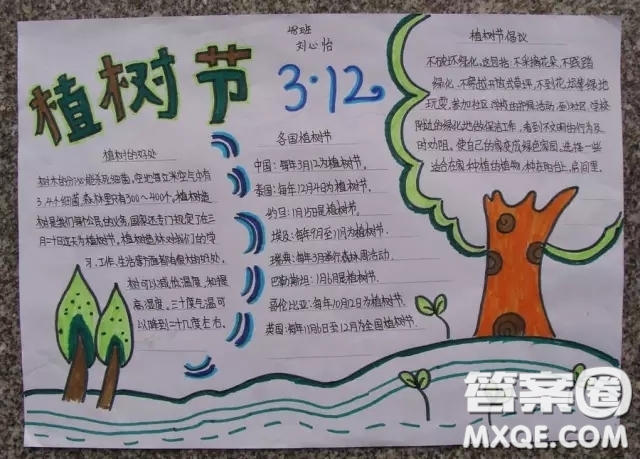 植树节
48班
刘心怡
3·12
植树的好处
树木的分泌能杀死细菌,空地每立米空气中有
3、4千细菌,森林里只有300～400个。植树造
树是我们每个公民的义务,国家还专门规定了在三
月十二日这天为植树节。植树造林对我们的学
习、工作、生活等方面都有很大的好处。
树可以减低温度,和提
高湿度。三十度气温可
以降到二十几度左右。
各国植树节
中国:每年3月12为植树节。
泰国:每年12月4为植树节。
约旦:1月15是植树节。
埃及:每年9月至11月为植树节。
瑞典:每年3月举行森林周活动。
巴勒斯坦:1月6是植树节。
哥伦比亚:每年10月2日为植树节。
英国:每年11月6日至12月为全国植树节。
植树节倡议
不破坏绿化,这包括:不采摘花朵、不践踏
绿化、不得越开放式草坪,不到花坛等绿地
玩耍,参加社区、学校的护绿活动,到社区、学校
附近的绿化地做保洁工作,看到不文明的行为及
时劝阻。使自己的家变成绿色家园,选择一些
适合在家种植的植物,种在阳台上、房间里。
答案圈
MXQE.COM